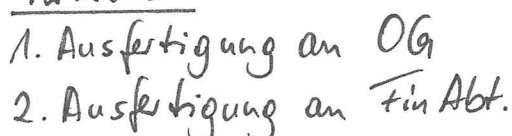 1. Ausfertigung an OG
2. Ausfertigung an FinAbt.